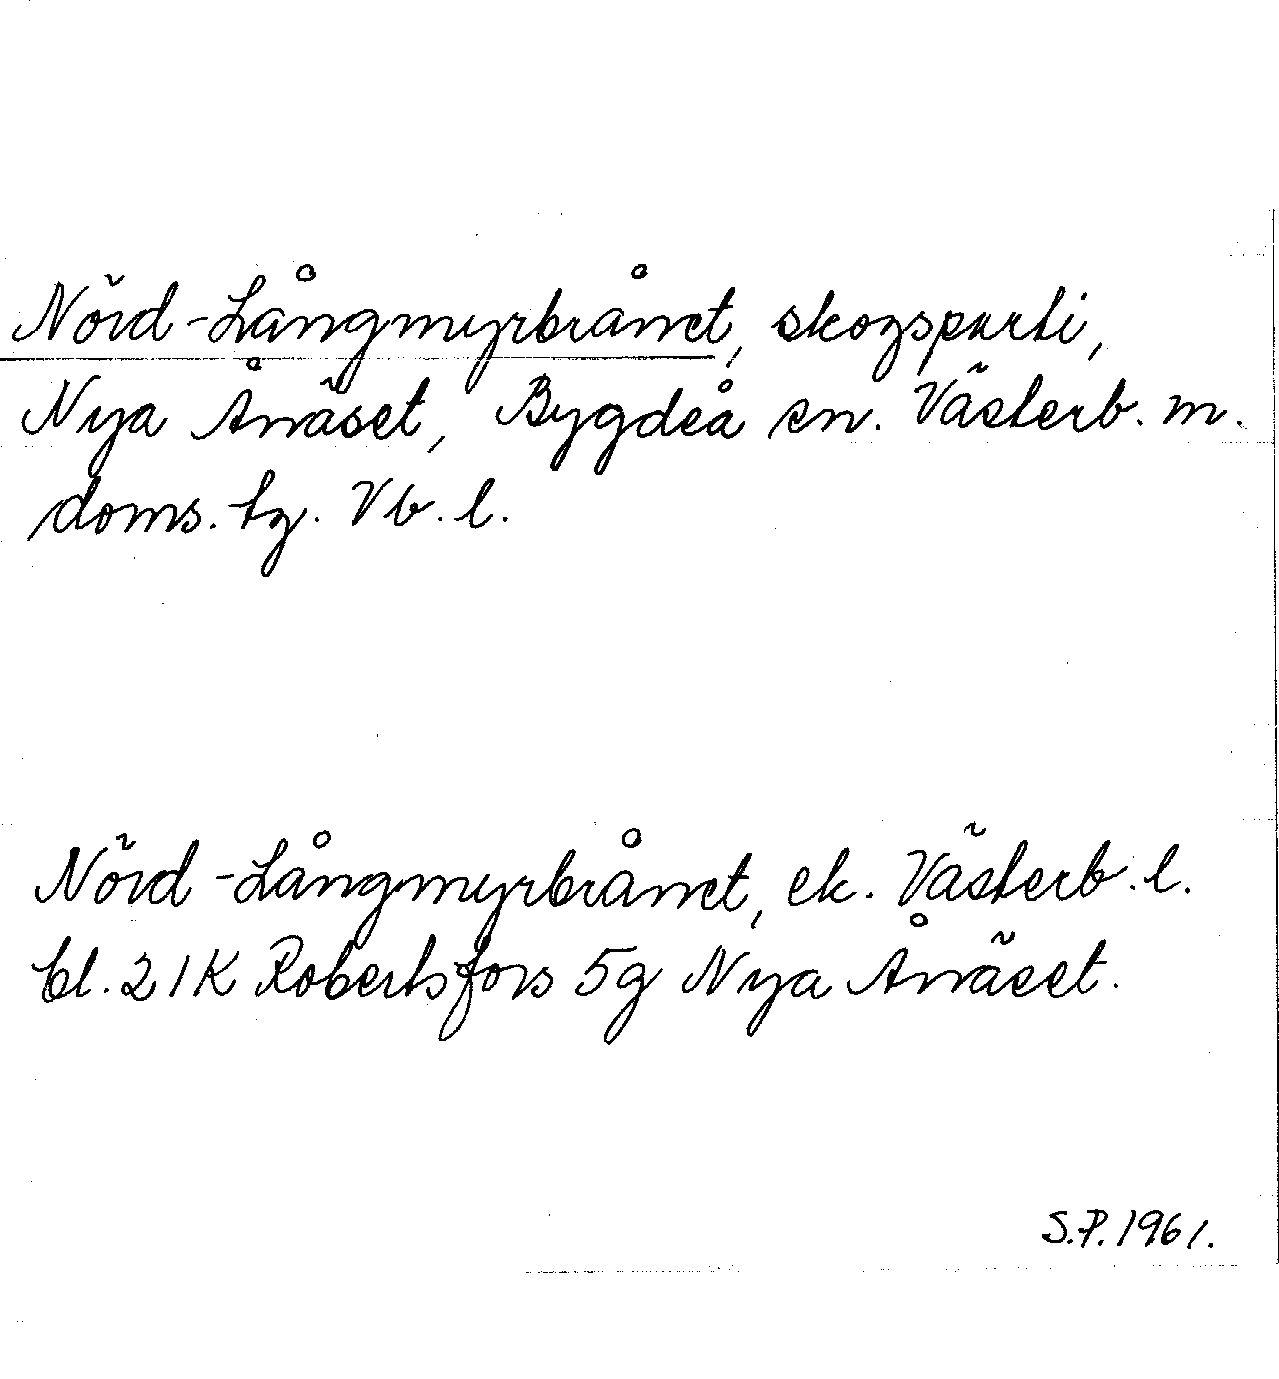 Nörd-Långmyrbrånet, skogsparti,
Nya Ånäset, Bygdeå sn. Västerb. m.
doms. tg. Vb. l.
Nörd-Långmyrbrånet, ek. Västerb. l.
bl. 21K Robertsfors 5g Nya Ånäset.
S.P. 1961.